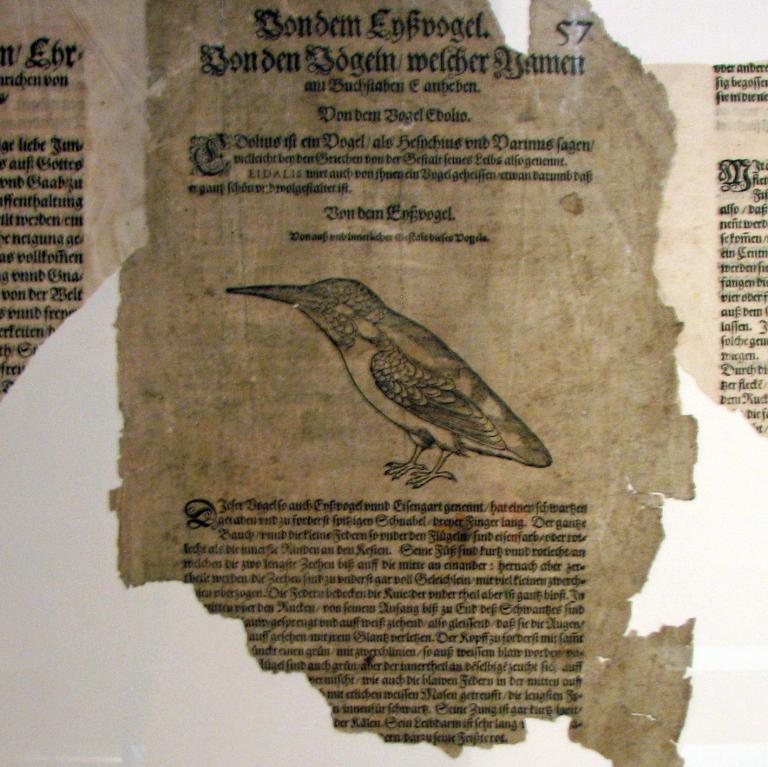 Von dem Eyßvogel.
57
Von den Vögeln/ welcher Namen
am Buchstaben E anheben.
Von dem Vogel Edolio.
EDolius ist ein Vogel/ als Hesychius vnd Varinus sagen/
villeicht bey den Griechen von der Gestalt seines Leibs also genennt.
EIDALIS wirt auch von jhnen ein Vogel geheissen/ etwan darumb daß
er gantz schön vnd wolgestaltet ist.
Von dem Eyßvogel.
Von auß vnd innerlicher Gestalt dieses Vogels.
DIeser Vogel so auch Eyßvogel vnnd Eisengart genennt/ hat einen schwartzen
geraden vnd zu forderst spitzigen Schnabel/ dreyer Finger lang. Der gantze
Bauch/ vnnd die kleine Federn so vnder den Flügeln/ sind eisenfarb/ oder rot-
lecht als die innerste Rinden an den Kesten. Seine Füß sind kurtz vnnd rotlecht/ an
welchen die zwo lengste Zeehen biß auff die mitte an einander: hernach aber zer-
theilt werden/ die Zeehen sind zu vnderst gar voll Geleichlein/ mit viel kleinen zwerch-
überzogen. Die Federn bedecken die Knie/ der vnder theil aber ist gantz bloß. In
mitten vber den Rucken/ von seinem Anfang biß zu End deß Schwantzes sind
gesprengt vnd auff weiß ziehend/ also gleissend/ daß sie die Augen/
auff gesehen mit jrem Glantz verletzen. Der Kopff zu forderst mit sampt
grün/ mit zwerchlinien/ so auß weissem blaw worden/
flügel sind auch grün/ aber der innertheil an denselbigen zeucht sich auff
vermischt/ wie auch die blawen Federn in der mitten auff
mit etlichen weissen Masen getreufft/ die lengsten Fe-
innenfür schwartz. Seine Zung ist gar kurtz
der Kälen. Sein Leibdarm ist sehr lang
darzu seine Feißte rot.
n/ Ehr-
nreichen von
ge liebe Jun-
auß Gottes
vnd Gaab/ zu
ffenthaltung
werden/ em
neigung ge-
as vollkom̃en
vnnd Gna-
von der Welt
vnnd
oder andere
sig begossen
sie in die
also/ daß
nent werd
sekom̃en/
ein Centn
werden sie
fangen die
vier oder f
auß dem
lassen.
solche
wegen.
Durch di
dem Ruck